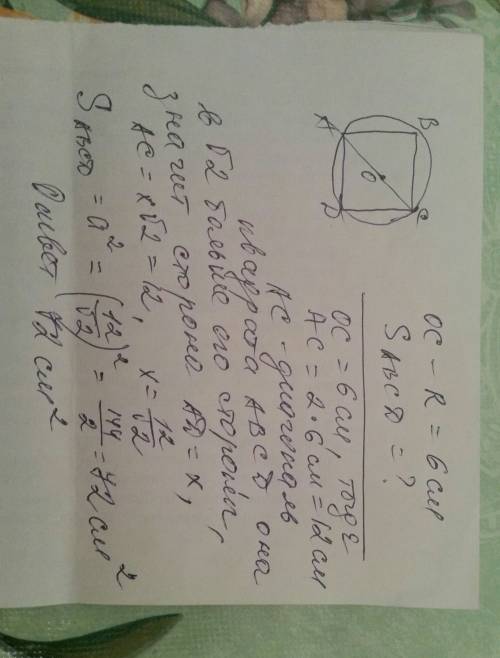 B
C
A
D
O
OC - R = 6 см
S ABCD = ?
OC = 6 см, тогда
AC = 2·6 см = 12 см
AC - диагональ
квадрата ABCD она
в √2 больше его стороны,
значит сторона AD = x,
AC = x√2 = 12, x = 12/√2
S ABCD = a² = (12/√2)² = 144/2 = 72 см²
Ответ 72 см²